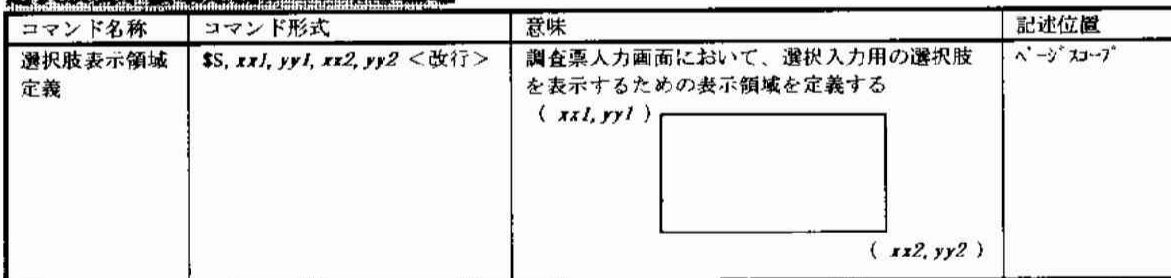 コマンド名称 コマンド形式 意味 記述位置
選択肢表示領域 $S, xx1, yy1, xx2, yy2 <改行> 調査票入力画面において、選択入力用の選択肢 ページスコープ
定義 を表示するための表示領域を定義する
( xx1, yy1 )
( xx2, yy2 )